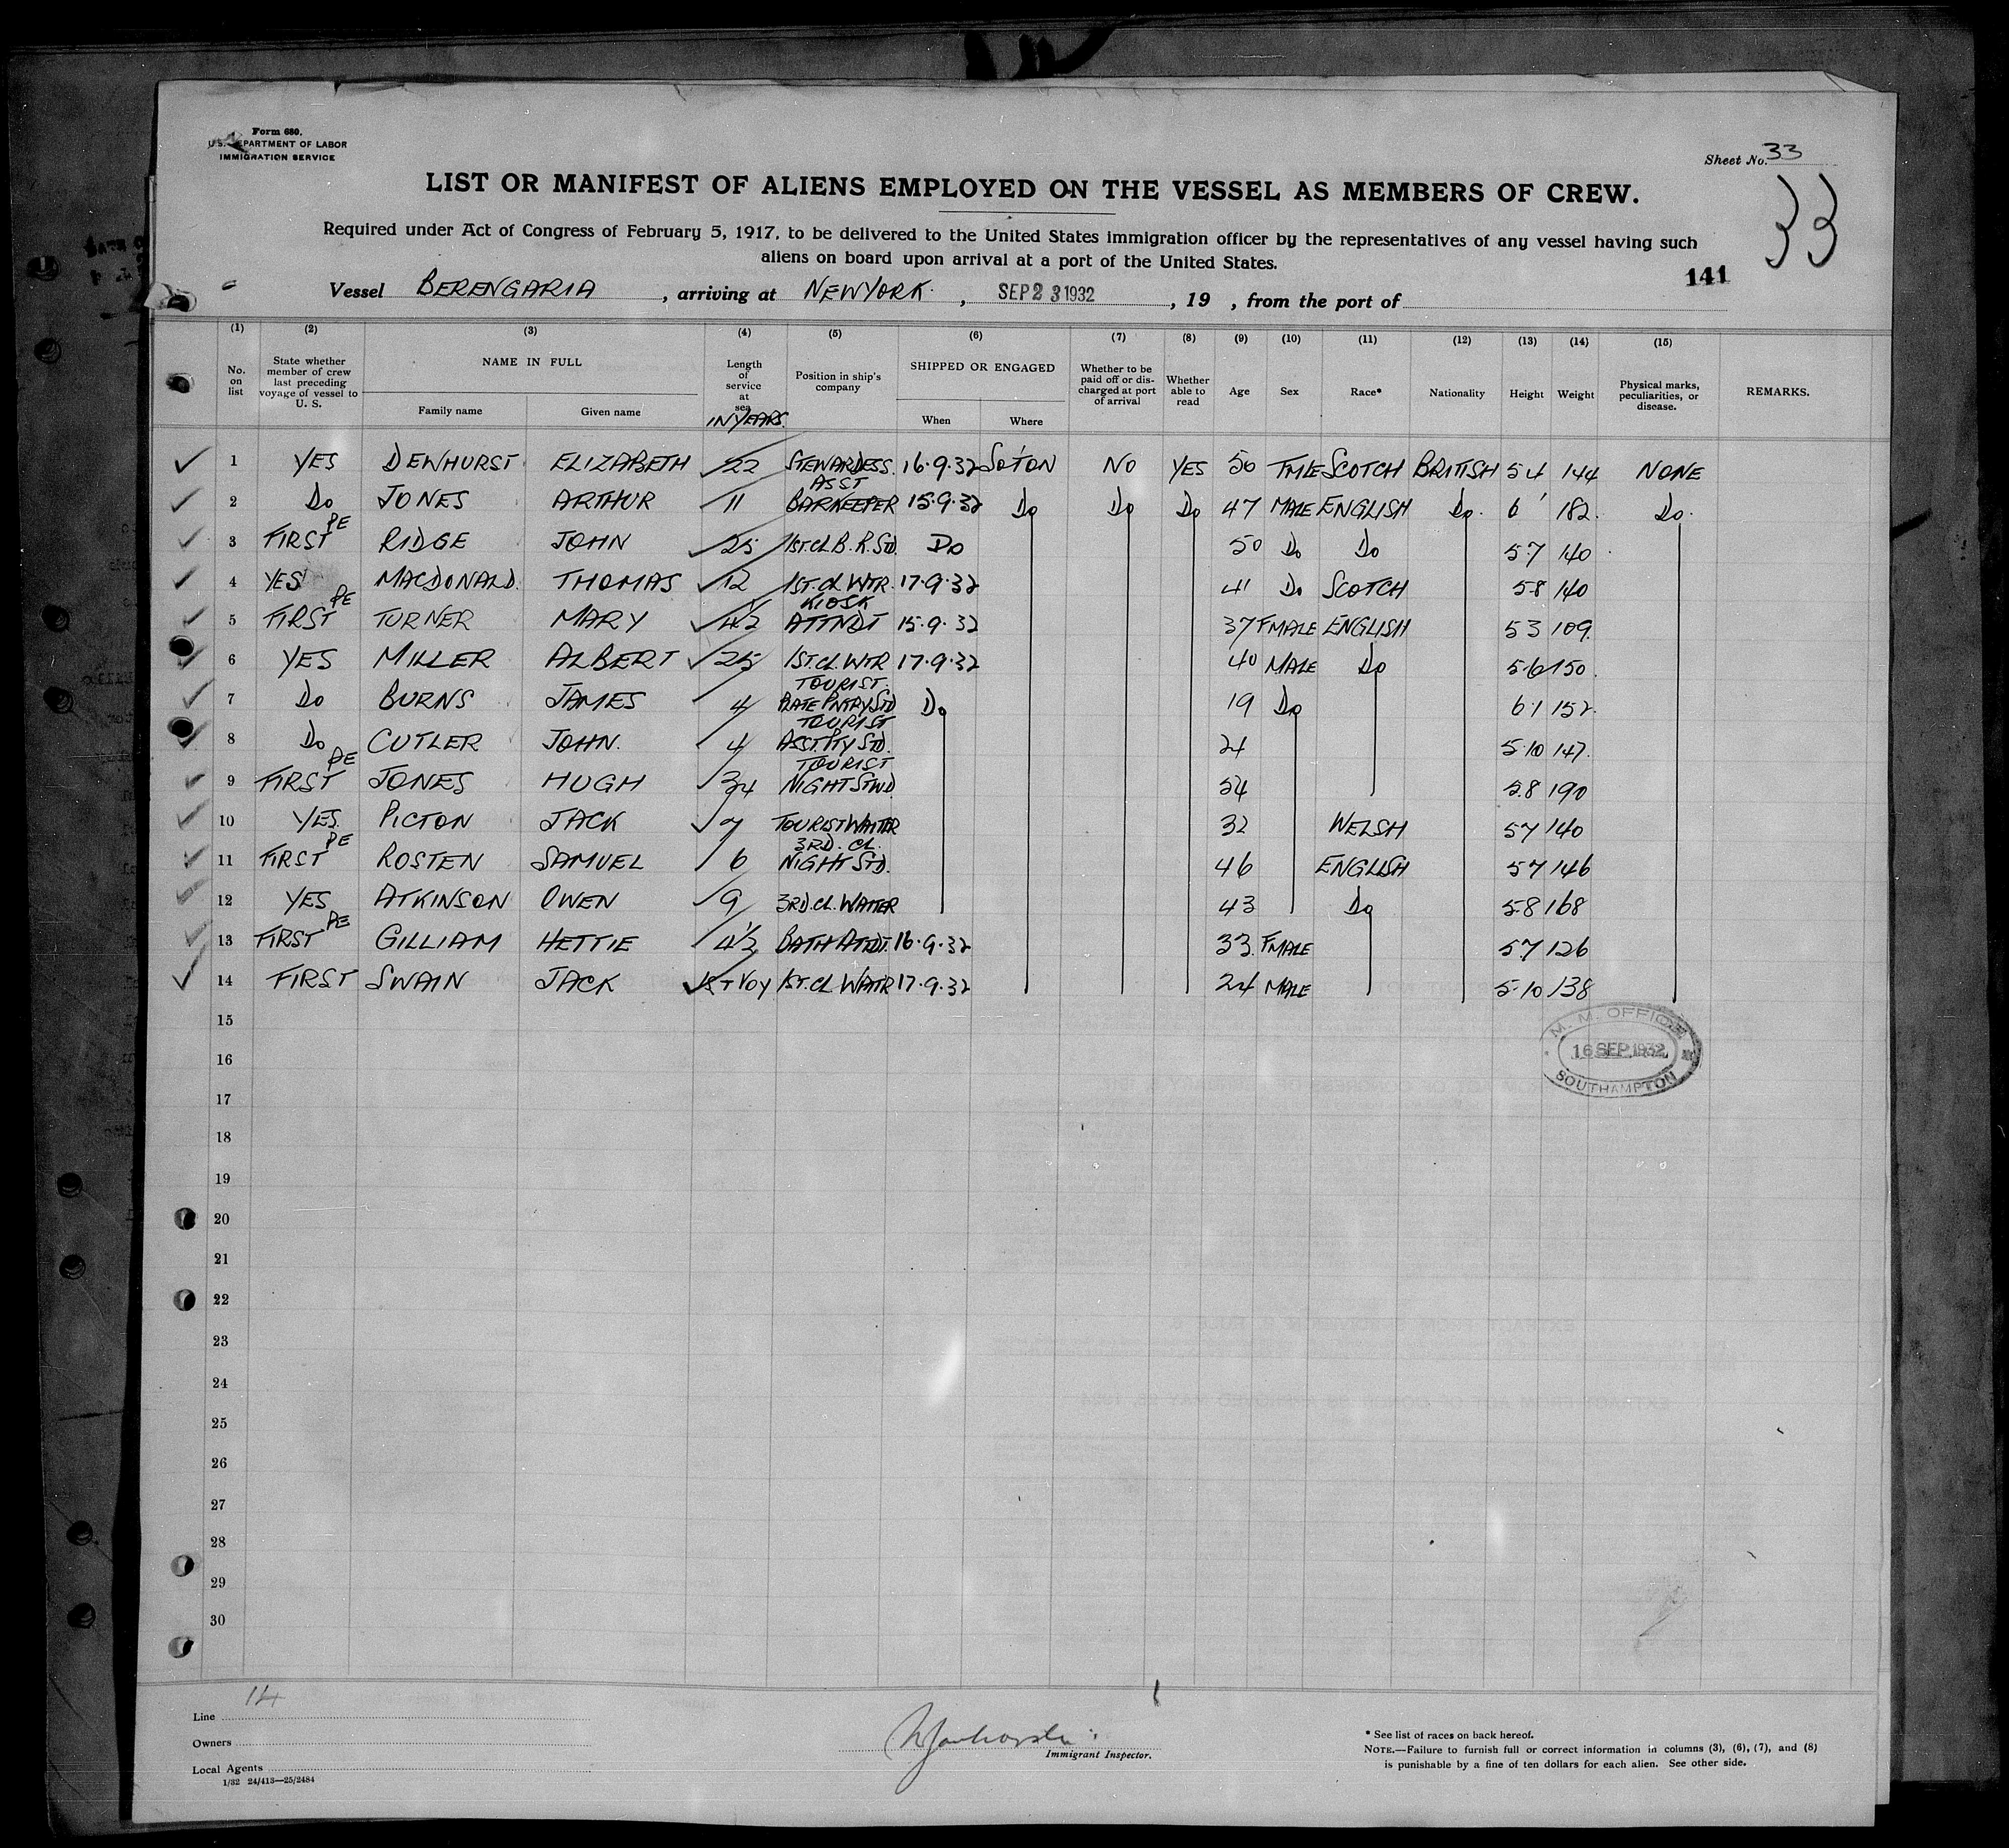 Form 680.
U.S. DEPARTMENT OF LABOR
IMMIGRATION SERVICE
Sheet No. 33
33
LIST OR MANIFEST OF ALIENS EMPLOYED ON THE VESSEL AS MEMBERS OF CREW.
Required under Act of Congress of February 5, 1917, to be delivered to the United States immigration officer by the representatives of any vessel having such
aliens on board upon arrival at a port of the United States.
141
Vessel BERENGARIA, arriving at NEW YORK, SEP 23 1932, 19 , from the port of
(1) (2) (3) (4) (5) (6) (7) (8) (9) (10) (11) (12) (13) (14) (15)
No. on list State whether member of crew last preceding voyage of vessel to U. S. NAME IN FULL Family name Given name Length of service at sea IN YEARS. Position in ship's company SHIPPED OR ENGAGED When Where Whether to be paid off or discharged at port of arrival Whether able to read Age Sex Race* Nationality Height Weight Physical marks, peculiarities, or disease. REMARKS.
1 YES DEWHURST ELIZABETH 22 STEWARDESS. 16.9.32 SO'TON NO YES 50 FMLE SCOTCH BRITISH 5 4 144 NONE
2 Do JONES ARTHUR 11 ASST BARKEEPER 15.9.32 Do Do Do 47 MALE ENGLISH Do. 6' 182. Do.
3 FIRST PE RIDGE JOHN 25 1ST.CL.B.R.STD. Do 50 Do Do 5.7 140
4 YES MACDONALD. THOMAS 12 1ST.CL.WTR. 17.9.32 41 Do SCOTCH 5.8 140
5 FIRST PE TURNER MARY 4½ KIOSK ATTNDT 15.9.32 37 FMALE ENGLISH 5 3 109.
6 YES MILLER ALBERT 25 1ST.CL.WTR 17.9.32 40 MALE Do 5.6 150.
7 Do BURNS JAMES 4 TOURIST. PLATE PNTRY STD Do 19 Do 6.1 152.
8 Do CUTLER JOHN. 4 TOURIST ASST.PTY STD. 24 5.10 147.
9 FIRST PE JONES HUGH 34 TOURIST NIGHT STWD 54 5.8 190
10 YES. PICTON JACK 7 TOURIST WAITER 32 WELSH 5 7 140
11 FIRST PE ROSTEN SAMUEL 6 3RD. CL. NIGHT STD. 46 ENGLISH 5 7 146
12 YES ATKINSON OWEN 9 3RD.CL.WAITER 43 Do 5.8 168
13 FIRST PE GILLIAM HETTIE 4½ BATH ATTDT. 16.9.32 33. FMALE 5.7 126
14 FIRST SWAIN JACK 1ST VOY 1ST.CL WAITR 17.9.32 24 MALE 5.10 138
15
M. M. OFFICE
16 SEP 1932
SOUTHAMPTON
16
17
18
19
20
21
22
23
24
25
26
27
28
29
30
14
Line
Owners
Local Agents
1/32 24/413—25/2484
Immigrant Inspector.
* See list of races on back hereof.
NOTE.—Failure to furnish full or correct information in columns (3), (6), (7), and (8)
is punishable by a fine of ten dollars for each alien. See other side.